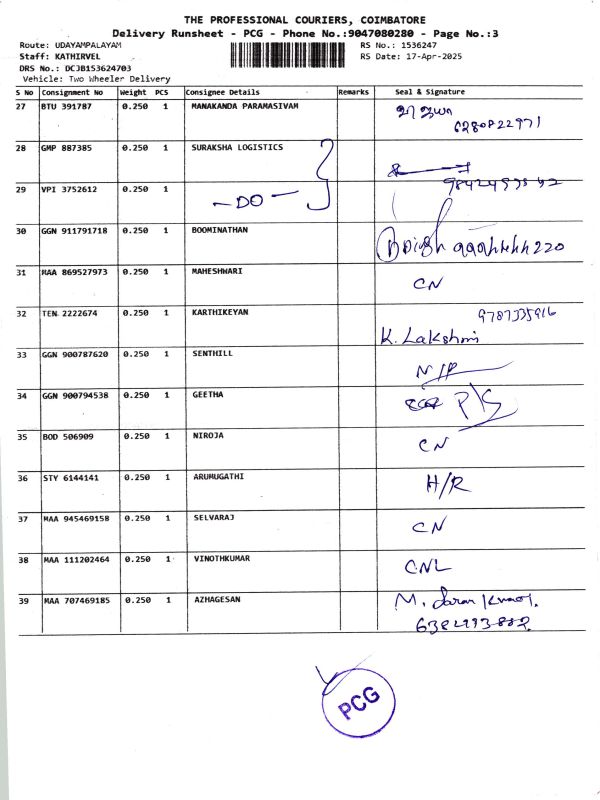 THE PROFESSIONAL COURIERS, COIMBATORE
Delivery Runsheet - PCG - Phone No.:9047080280 - Page No.:3
Route: UDAYAMPALAYAM RS No.: 1536247
Staff: KATHIRVEL RS Date: 17-Apr-2025
DRS No.: DCJB153624703
Vehicle: Two Wheeler Delivery
S No Consignment No Weight PCS Consignee Details Remarks Seal & Signature
27 BTU 391787 0.250 1 MANAKANDA PARAMASIVAM
28 GMP 887385 0.250 1 SURAKSHA LOGISTICS
29 VPI 3752612 0.250 1 -DO-
30 GGN 911791718 0.250 1 BOOMINATHAN
31 MAA 869527973 0.250 1 MAHESHWARI CN
32 TEN 2222674 0.250 1 KARTHIKEYAN 9787335916
K. Lakshmi
33 GGN 900787620 0.250 1 SENTHILL N/P
34 GGN 900794538 0.250 1 GEETHA P/S
35 BOD 506909 0.250 1 NIROJA CN
36 STY 6144141 0.250 1 ARUMUGATHI H/R
37 MAA 945469158 0.250 1 SELVARAJ CN
38 MAA 111202464 0.250 1 VINOTHKUMAR CNL
39 MAA 707469185 0.250 1 AZHAGESAN
PCG